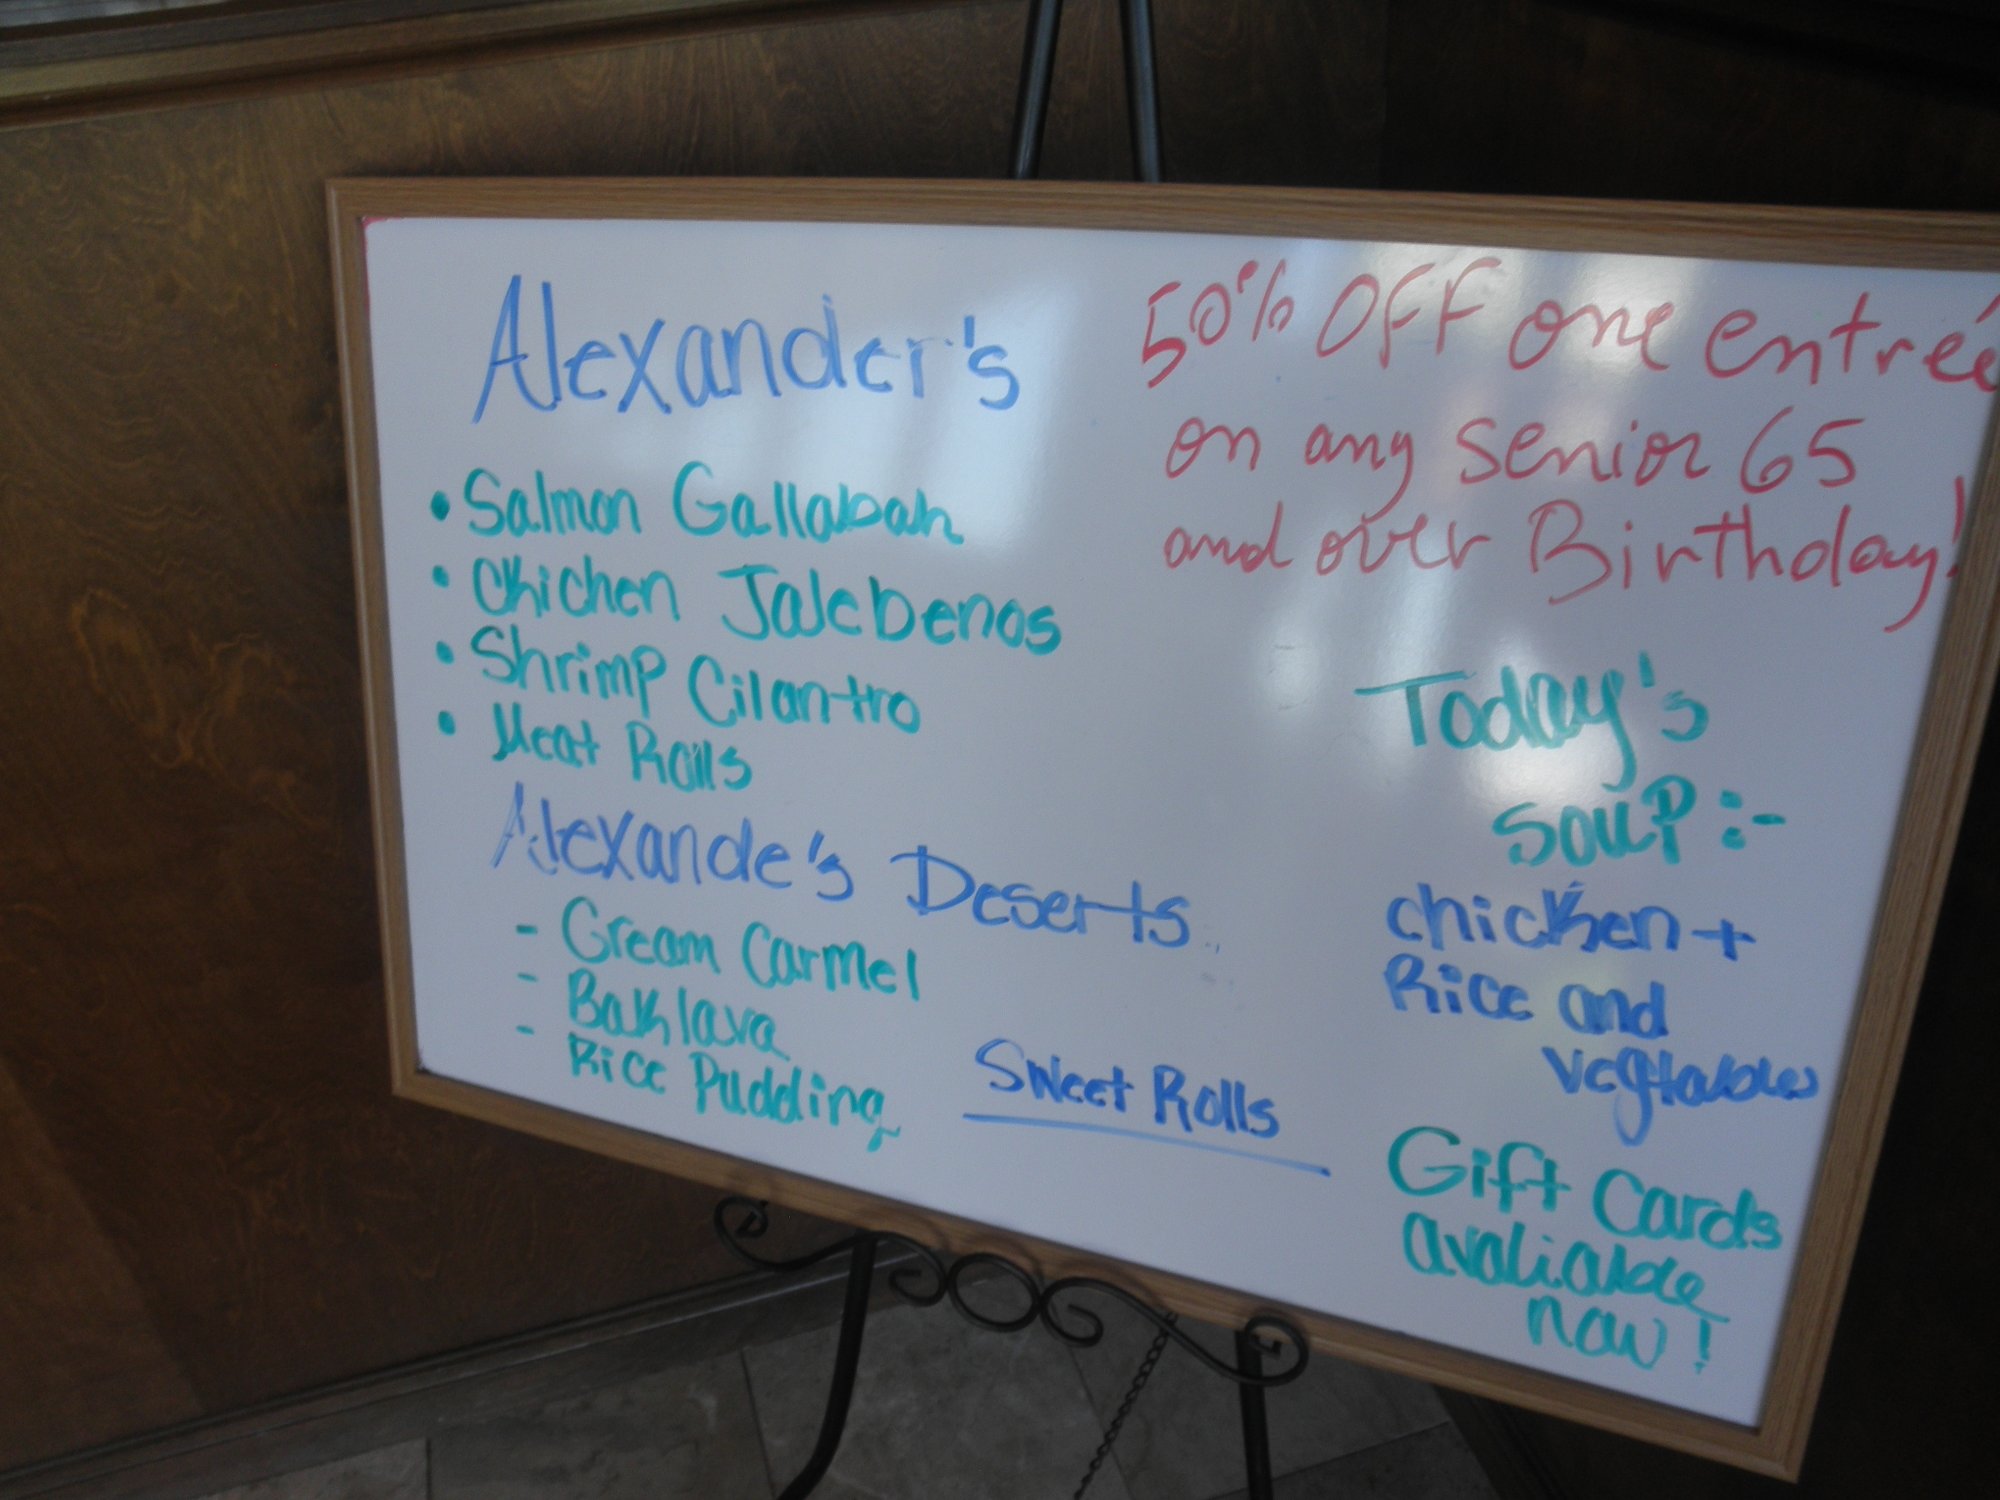 Alexander's
• Salmon Gallabah
• Chichen Jalebenos
• Shrimp Cilantro
• Meat Rolls
Alexande's Deserts
- Cream Carmel
- Baklava
- Rice Pudding
Sweet Rolls
50% OFF one entrée
on any senior 65
and over Birthday!
Today's
SOUP :-
chicken +
Rice and
vegtables
Gift Cards
avaliable
now!